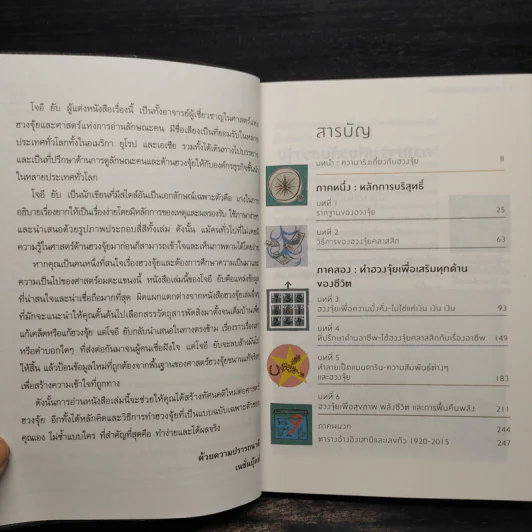 โจอี ยับ ผู้แต่งหนังสือเรื่องนี้ เป็นทั้งอาจารย์ผู้เชี่ยวชาญในศาสตร์แห่ง
ฮวงจุ้ยและศาสตร์แห่งการอ่านลักษณะคน มีชื่อเสียงเป็นที่ยอมรับในหลาย
ประเทศทั่วโลกทั้งในอเมริกา ยุโรป และเอเชีย รวมทั้งได้เดินทางไปบรรยาย
และเป็นที่ปรึกษาด้านการดูลักษณะคนและด้านฮวงจุ้ยให้กับองค์กรธุรกิจชั้นนำ
ในหลายประเทศทั่วโลก
โจอี ยับ เป็นนักเขียนที่มีสไตล์อันเป็นเอกลักษณ์เฉพาะตัวคือ เก่งในการ
อธิบายเรื่องยากให้เป็นเรื่องง่ายโดยมีหลักการของเหตุและผลรองรับ ใช้ภาษาง่าย
และนำเสนอด้วยรูปภาพประกอบสี่สีทั้งเล่ม ดังนั้น แม้คนทั่วไปที่ไม่เคยมี
ความรู้ในศาสตร์ด้านฮวงจุ้ยมาก่อนก็สามารถเข้าใจและเห็นภาพตามได้โดยง่าย
หากคุณเป็นคนหนึ่งที่สนใจเรื่องฮวงจุ้ยและต้องการศึกษาความเป็นมาและ
ความเป็นไปของศาสตร์อมตะแขนงนี้ หนังสือเล่มนี้ของโจอี ยับคือแหล่งข้อมูล
ที่น่าสนใจและน่าเชื่อถือมากที่สุด ผิดแผกแตกต่างจากหนังสือฮวงจุ้ยเล่มอื่นๆ
ที่มักจะแนะนำให้คุณดั้นด้นไปเลือกสรรวัตถุสารพัดสิ่งมาตั้งจนเต็มบ้านเพื่อ
แก้เคล็ดหรือแก้ฮวงจุ้ย แต่โจอี ยับกลับนำเสนอในทางตรงข้าม เรื่องราวเรื่องเล่า
หรือคำบอกใดๆ ที่ส่งต่อกันมาจนผู้คนเชื่อฝังใจ แต่โจอี ยับจะลบล้างมัน
ให้สิ้น แล้วป้อนข้อมูลใหม่ที่ถูกต้องจากพื้นฐานของศาสตร์ฮวงจุ้ยขนานแท้
เพื่อสร้างความเข้าใจให้ถูกทาง
ดังนั้นการอ่านหนังสือเล่มนี้จะช่วยให้คุณได้สร้างทัศนคติใหม่ต่อศาสตร์
ฮวงจุ้ย อีกทั้งได้หลักคิดและวิธีการทำฮวงจุ้ยที่เป็นแบบฉบับเฉพาะตัวของ
คุณเอง ไม่ซ้ำแบบใคร ที่สำคัญที่สุดคือ ทำง่ายและได้ผลจริง
ด้วยความปรารถนาดี
เนชั่นบุ๊คส์
สารบัญ
บทนำ : ความจริงเกี่ยวกับฮวงจุ้ย 8
ภาคหนึ่ง : หลักการบริสุทธิ์
บทที่ 1
รากฐานของฮวงจุ้ย 25
บทที่ 2
วิธีการของฮวงจุ้ยคลาสสิก 63
ภาคสอง : ทำฮวงจุ้ยเพื่อเสริมทุกด้าน
ของชีวิต
บทที่ 3
ฮวงจุ้ยเพื่อความมั่งคั่ง-ไม่ใช่แค่เงิน เงิน เงิน 93
บทที่ 4
ที่ปรึกษาด้านอาชีพ-ใช้ฮวงจุ้ยคลาสสิกกับเรื่องอาชีพ 149
บทที่ 5
ทำลายเป็ดแมนดาริน-ความสัมพันธ์ต่างๆ
และฮวงจุ้ย 183
บทที่ 6
ฮวงจุ้ยเพื่อสุขภาพ พลังชีวิต และการฟื้นคืนพลัง 211
ภาคผนวก 244
ตารางอ้างอิงเสาปีและเลขกัว 1920-2015 247